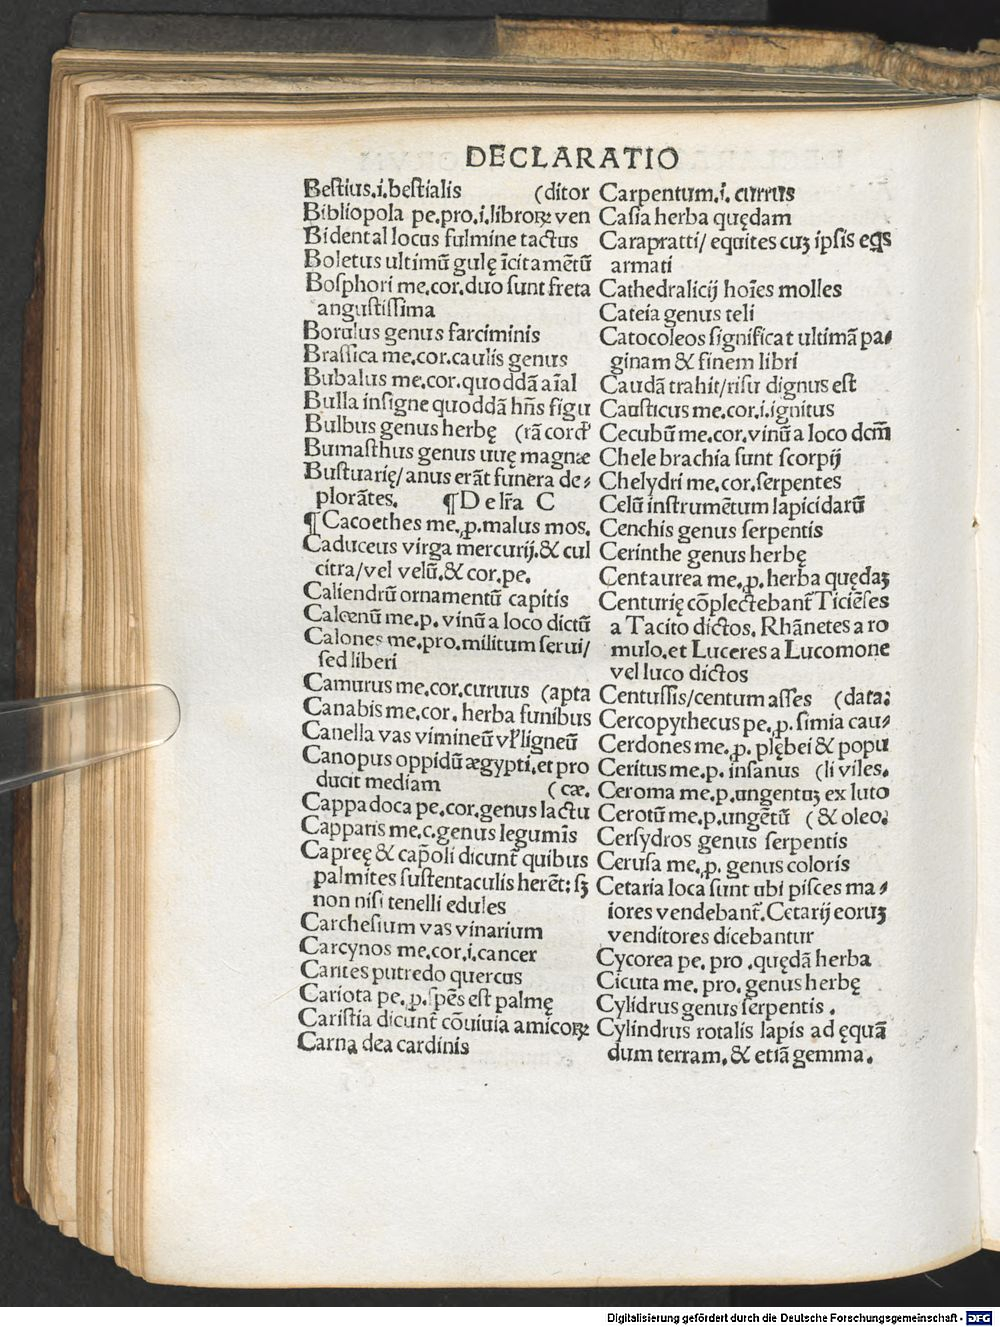 DECLARATIO
Beſtius.i.beſtialis (ditor
Bibliopola pe.pro.i.libroꝝ ven
Bidental locus fulmine tactus
Boletus ultimũ gulę ĩcitamẽtũ
Boſphori me.cor.duo ſunt freta
anguſtiſſima
Borulus genus farciminis
Braſſica me.cor.caulis genus
Bubalus me.cor.quoddã aĩal
Bulla inſigne quoddã hñs figu
Bulbus genus herbę (rã cord'
Bumaſthus genus uuę magnæ
Buſtuarię/anus erãt funera de⸗
plorãtes. ¶De lr̃a C
¶Cacoethes me.ꝓ.malus mos.
Caduceus virga mercurij.& cul
citra/vel velũ.& cor.pe.
Caliendrũ ornamentũ capitis
Calœnũ me.p.vinũ a loco dictũ
Calones me.pro.militum ſerui/
ſed liberi
Camurus me.cor.curuus (apta
Canabis me.cor.herba funibus
Canella vas vimineũ vl̓ ligneũ
Canopus oppidũ ægypti.et pro
ducit mediam (cæ.
Cappadoca pe.cor.genus lactu
Capparis me.c.genus legumĩs
Capreę & cap̃oli dicunt̃ quibus
palmites ſuſtentaculis herẽt:ſꝫ
non niſi tenelli edules
Carcheſium vas vinarium
Carcynos me.cor.i.cancer
Carites putredo quercus
Cariota pe.ꝓ.ſpẽs eſt palmę
Cariſtia dicunt̃ cõuiuia amicoꝝ
Carna dea cardinis
Carpentum.i.currus
Caſia herba quędam
Carapratti/equites cuꝫ ipſis eqs
armati
Cathedralicij hoĩes molles
Cateia genus teli
Catocoleos ſignificat ultimã pa⸗
ginam & finem libri
Caudã trahit/riſu dignus eſt
Cauſticus me.cor.i.ignitus
Cecubũ me.cor.vinũ a loco dcm̃
Chele brachia ſunt ſcorpij
Chelydri me.cor.ſerpentes
Celũ inſtrumẽtum lapicidarũ
Cenchis genus ſerpentis
Cerinthe genus herbę
Centaurea me.ꝓ.herba quędaꝫ
Centurię cõplectebant̃ Ticiẽſes
a Tacito dictos.Rhãnetes a ro
mulo.et Luceres a Lucomone
vel luco dictos
Centuſſis/centum aſſes (data.
Cercopythecus pe.ꝓ.ſimia cau⸗
Cerdones me.ꝓ.plębei & popu
Ceritus me.p.inſanus (li viles.
Ceroma me.p.ungentuꝫ ex luto
Cerotũ me.p.ungẽtũ (& oleo.
Cerſydros genus ſerpentis
Ceruſa me.ꝓ.genus coloris
Cetaria loca ſunt ubi piſces ma⸗
iores vendebant̃.Cetarij eoruꝫ
venditores dicebantur
Cycorea pe.pro.quędã herba
Cicuta me.pro.genus herbę
Cylidrus genus ſerpentis.
Cylindrus rotalis lapis ad ęquã
dum terram.& etiã gemma.
Digitalisierung gefördert durch die Deutsche Forschungsgemeinschaft - DFG